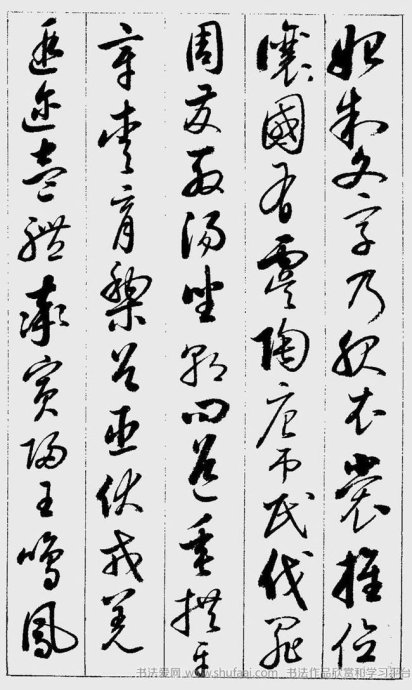 始制文字乃服衣裳推位
讓國有虞陶唐弔民伐罪
周發殷湯坐朝問道垂拱平
章愛育黎首臣伏戎羌
遐邇壹體率賓歸王鳴鳳
书法爱网 www.shufaai.com 书法作品欣赏和学习平台